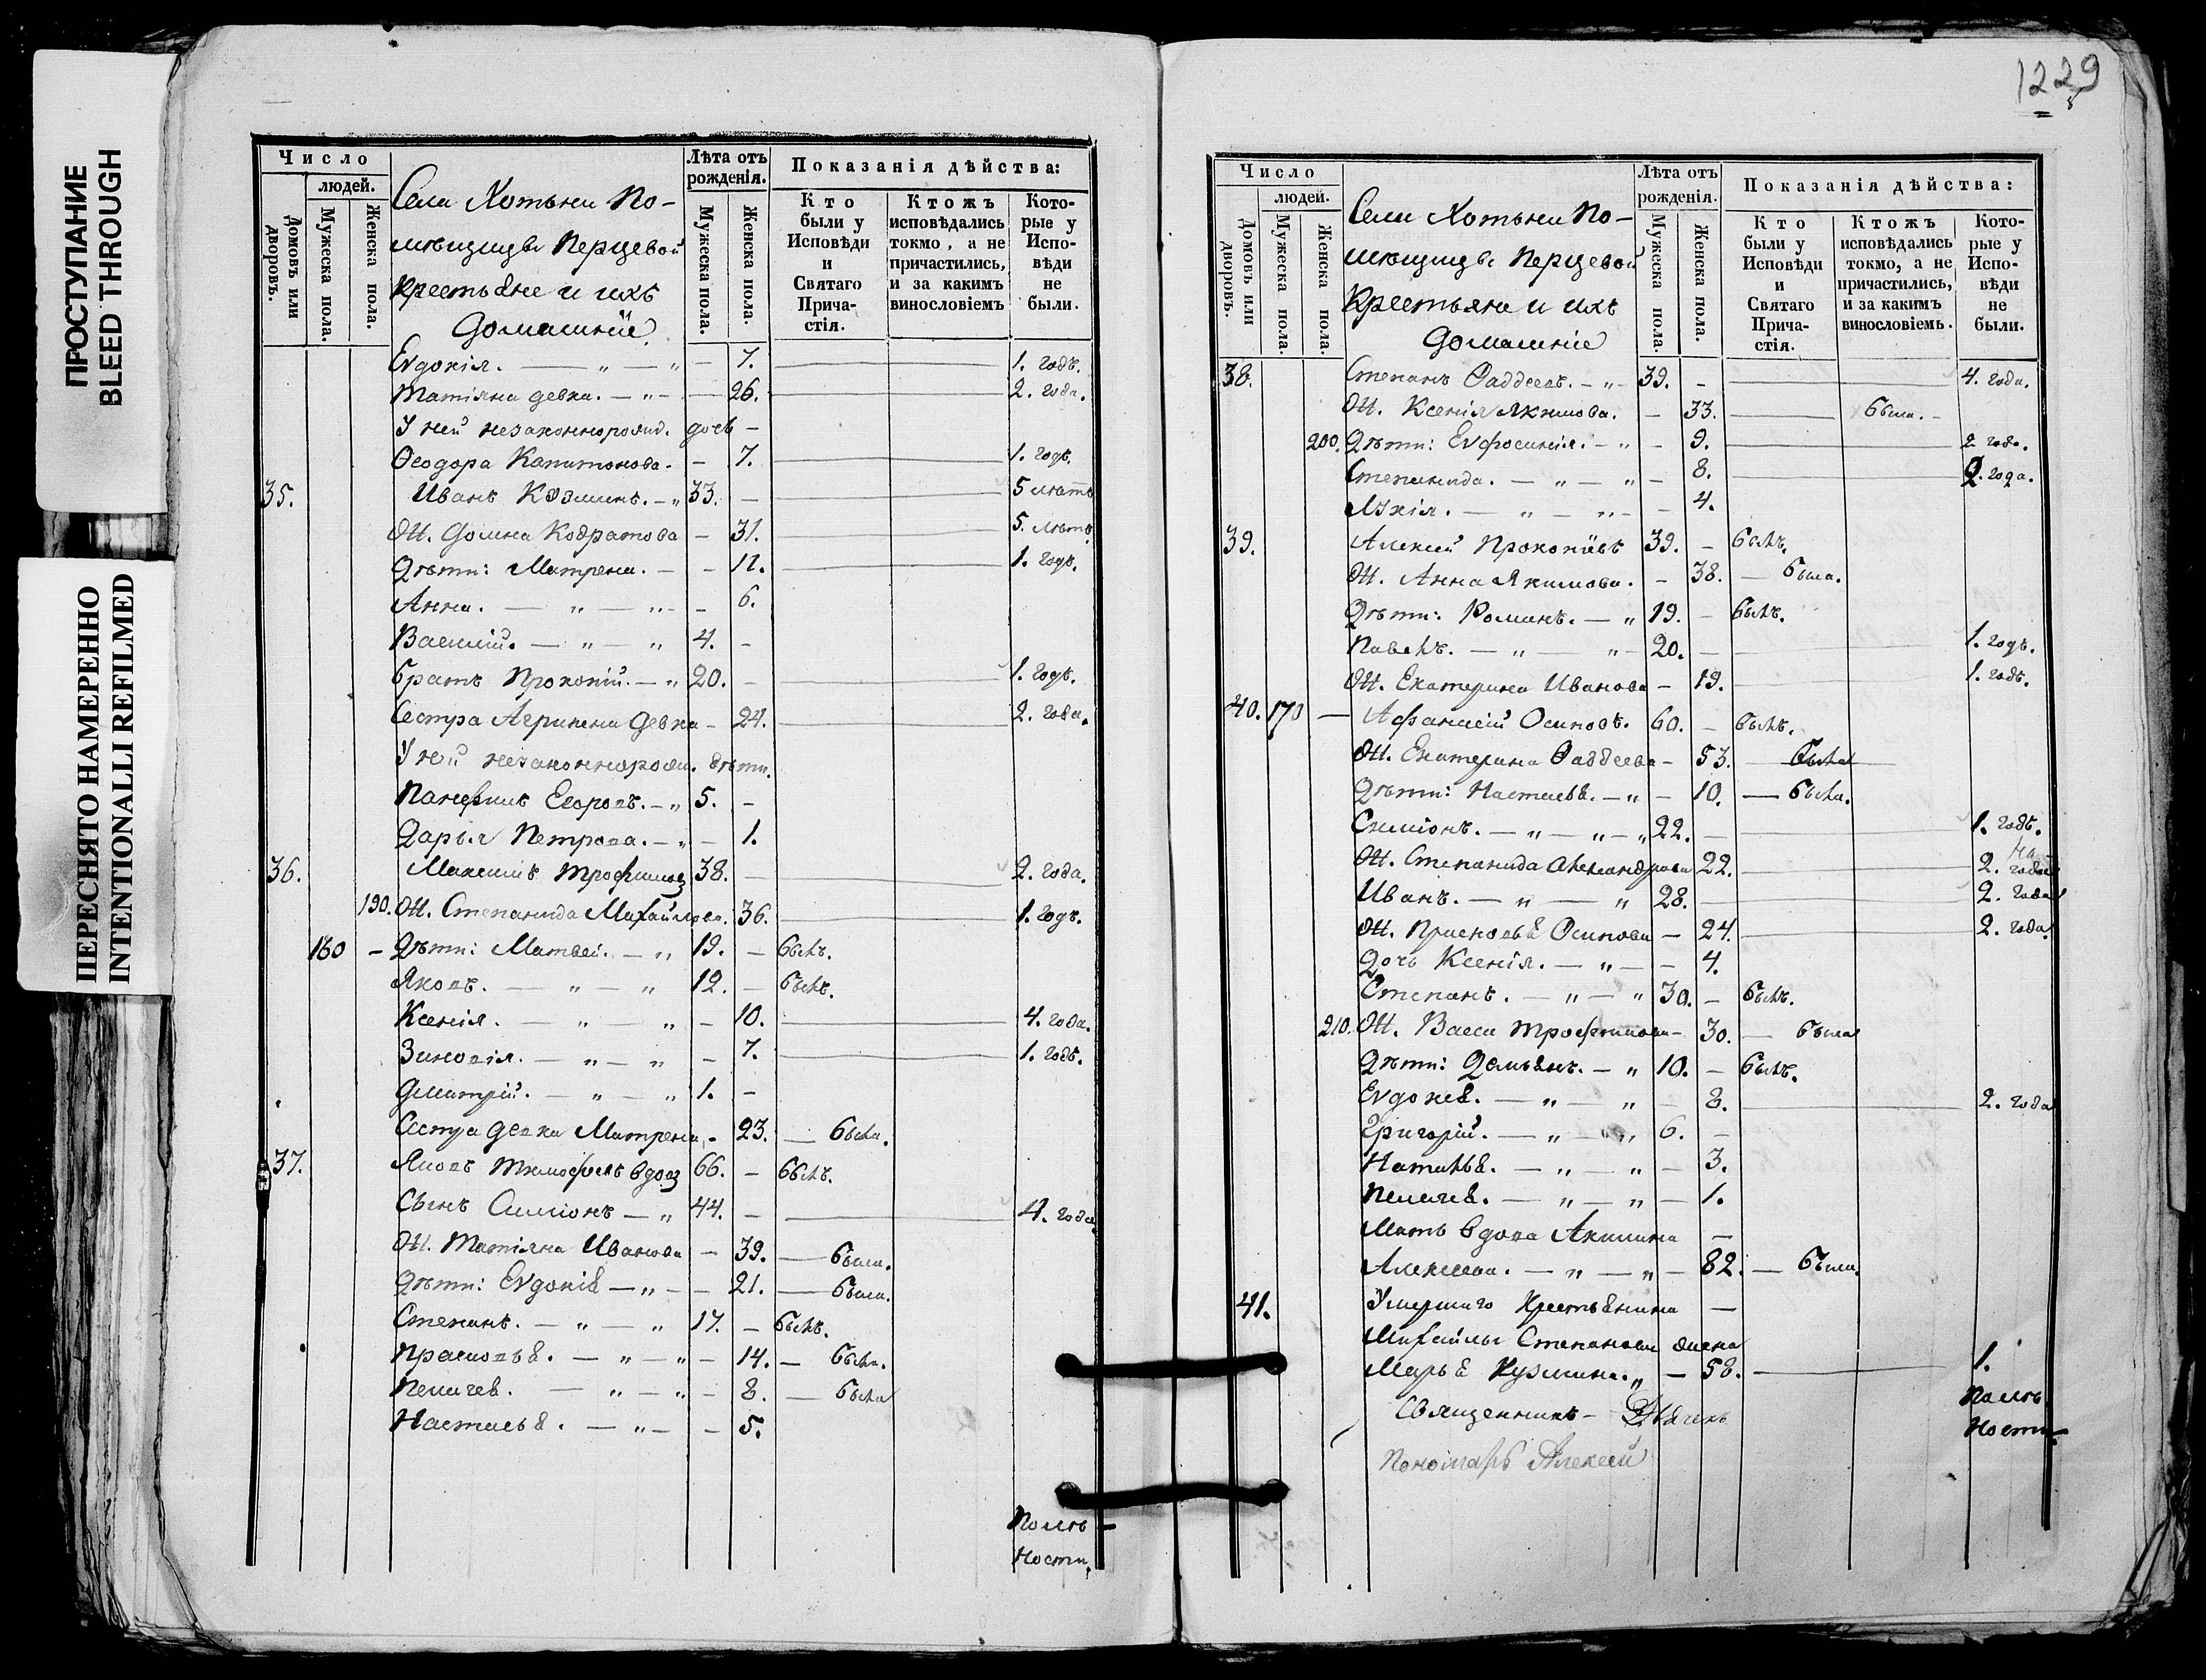 ПРОСТУПАНИЕ
BLEED THROUGH
ПЕРЕСНЯТО НАМЕРЕННО
INTENTIONALLI REFILMED
Число
людей.
Домовъ или дворовъ.
Мужеска пола.
Женска пола.
Села Хотьни По-
мѣщицы Перцевой
Крестьяне и ихъ
домашнїе
Лѣта отъ рожденія.
Мужеска пола.
Женска пола.
Показанія дѣйства:
Кто были у Исповѣди и Святаго Прича-стія.
Ктожъ исповѣдались токмо, а не причастились, и за какимъ винословіемъ
Кото-рые у Испо-вѣди не были.
Еѵдокія. — „ — „ — 7. 1. годъ.
Татіяна девка. — „ — 26. 2. года.
У ней незаконнорожд. дочь —
Ѳеодора Капитонова. — 7. 1. годъ.
35. Иванъ Козминъ. — „ 33. — 5 лѣтъ
Ж. Домна Кодратова — 31. 5. лѣтъ.
Дѣти: Матрена. — — 11. 1. годъ.
Анна. — „ — „ — 6.
Василій. — „ — „ 4. —
братъ Прокопій. — „ 20. — 1. годъ.
Сестра Агрипена девка — 24. 2. года.
У ней незаконнорожд. дѣти.
Панфилъ Егоровъ. — „ 5. —
Дарья Петрова. — „ — 1.
36. Максимъ Трофимовъ 38. — 2. года.
190. Ж. Степанида Михайлова. 36. 1. годъ.
160 — Дѣти: Матвей. — „ 19. — былъ.
Яковъ. — „ — „ 12. — былъ.
Ксенія. — „ — „ — 10. 4. года.
Зиновія. — „ — „ — 7. 1. годъ.
Дмитрій. — „ — „ 1. —
Сестра девка Матрена — 23. — была.
37. Яковъ Тимофеевъ вдовъ 66. — былъ.
Сынъ Симіонъ — „ 44. — 4. года
Ж. Татіяна Иванова — 39. — была.
Дѣти: Еѵдокія — „ — — 21. — была.
Степанъ. — „ — „ 17. — былъ.
Прасковья. — „ — „ — 14. — была.
Пелагея. — „ — „ — 8. — была
Настасья. — „ — — 5.
По лѣтъ-
ности.
1229
Число
людей.
Домовъ или дворовъ.
Мужеска пола.
Женска пола.
Села Хотьни По-
мѣщицы Перцевой
Крестьяне и ихъ
домашніе
Лѣта отъ рожденія.
Мужеска пола.
Женска пола.
Показанія дѣйства:
Кто были у Исповѣди и Святаго Прича-стія.
Ктожъ исповѣдались токмо, а не причастились, и за какимъ винословіемъ.
Кото-рые у Испо-вѣди не были.
38. Степанъ Фаддеевъ. — „ — 39. — 4. года.
Ж. Ксенія Якимова. — 33. — была. —
200. Дѣти: Еѵфросинія. — „ — 9. 2. года.
Степанида. — „ — „ — 8. 2. года.
Лукія. — „ — „ — 4.
39. Алексей Прокопїевъ 39. — былъ.
Ж. Анна Якимова. — 38. — была.
Дѣти: Романъ. — „ 19. — былъ.
Павелъ. — „ — „ — 20. — 1. годъ.
Ж. Екатерина Иванова — 19. 1. годъ.
40. 170 — Афанасій Осиповъ. 60. — былъ.
Ж. Екатерина Фаддеева — 53. — была
Дѣти: Настасья. — „ — 10. — была.
Симіонъ. — „ — „ — „ 22. — 1. годъ.
Ж. Степанида Александрова 22. 2. года
Иванъ. — „ — „ 28. — 2. года
Ж. Прасковья Осипова — 24. 2. года.
Дочь Ксенія. — „ — — 4.
Степанъ. — „ — „ 30. — былъ.
210. Ж. Васса Трофимова — 30. — была
Дѣти: Демьянъ. — „ 10. — былъ.
Еѵдокея. — „ — „ — 8. 2. года
Григорій. — „ — „ 6. —
Наталья. — „ — „ — 3.
Пелагея. — „ — „ — 1.
Мать вдова Акилина —
Алексеева. — „ — „ — 82. — была.
41. Умершаго Крестьянина —
Михайлы Степанова жена
Марья Кузмина. „ — 58. — 1.
По лѣтъ-
ности
Священникъ —
Пономарь Алексей